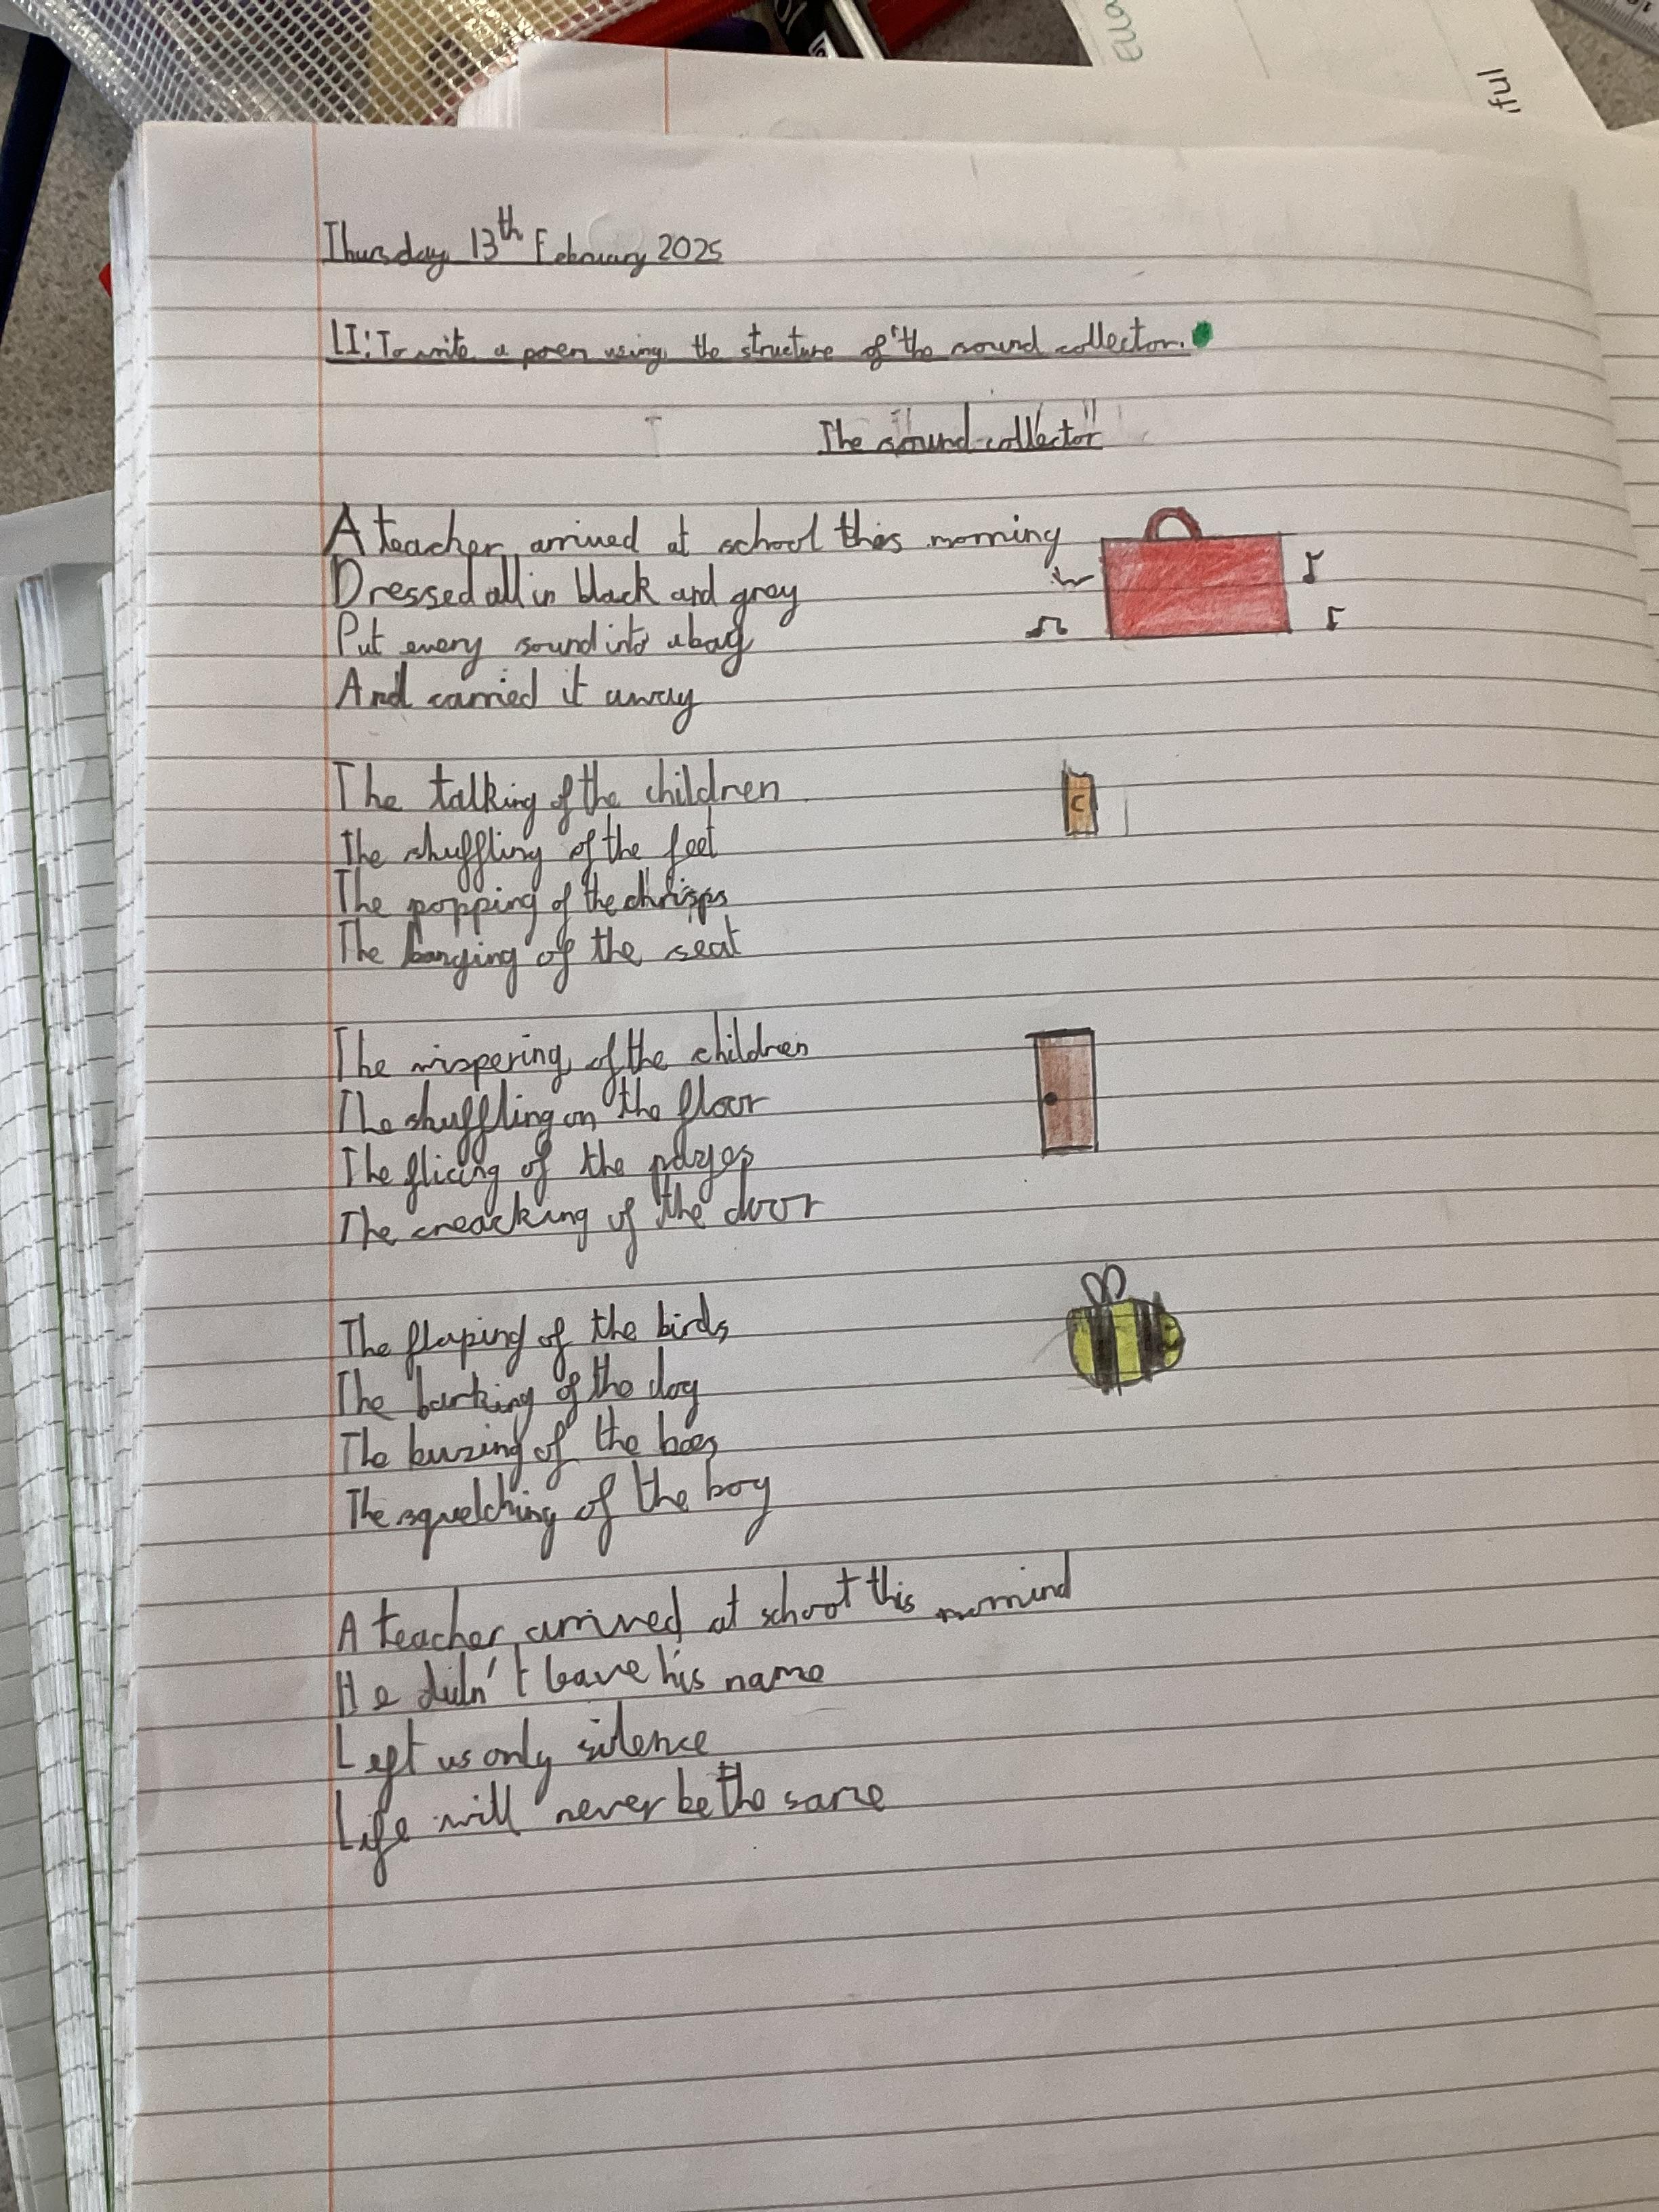 Thursday 13th February 2025
LI: To write a poem using the structure of "the sound collector.
The sound collector
A teacher arrived at school this morning
Dressed all in black and grey
Put every sound into a bag
And carried it away
The talking of the children
The shuffling of the feet
The popping of the chrisps
The banging of the seat
C
The wispering of the children
The shuffling on the floor
The flicing of the pages
The creacking of the door
The flaping of the birds
The barking of the dog
The buzing of the bees
The squelching of the bog
A teacher arrived at school this mornind
He didn't leave his name
Left us only silence
Life will never be the same